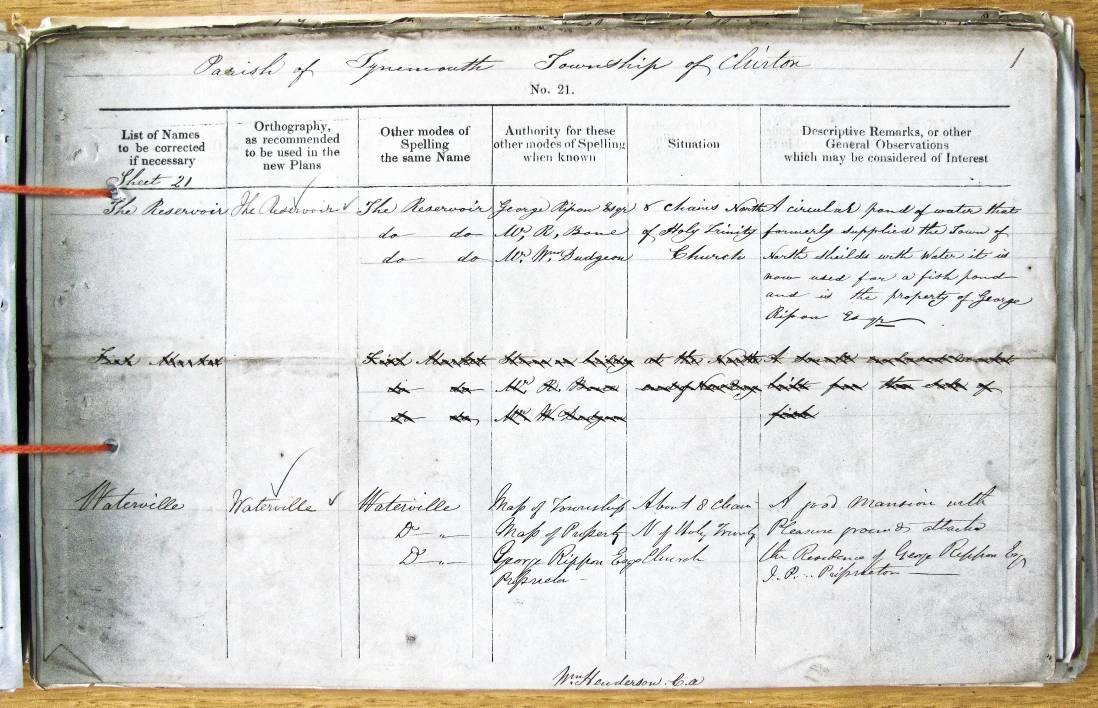 Parish of Tynemouth Township of Chirton 1
No. 21.
List of Names to be corrected if necessary
Orthography, as recommended to be used in the new Plans
Other modes of Spelling the same Name
Authority for these other modes of Spelling when known
Situation
Descriptive Remarks, or other General Observations which may be considered of Interest
Sheet 21
The Reservoir The Reservoir The Reservoir George Ripon Esqr 8 chains North A circular pond of water that
do do Mr. R. Bone of Holy Trinity formerly supplied the Town of
do do Mr. Wm. Dudgeon Church North Shields with Water it is
now used for a fish pond
and is the property of George
Ripon Esqr
Fish Market Fish Market at the North A small
do do Mr. R. Bone built for the sale of
do do Mr. W. Dudgeon fish
Waterville Waterville Waterville Map of Township About 8 Chains A good Mansion with
Do " Map of Property N of Holy Trinity Pleasure grounds attached
Do " George Rippon Esqr Church the Residence of George Rippon Esq
Proprietor J. P. Proprietor
Wm. Henderson C.a